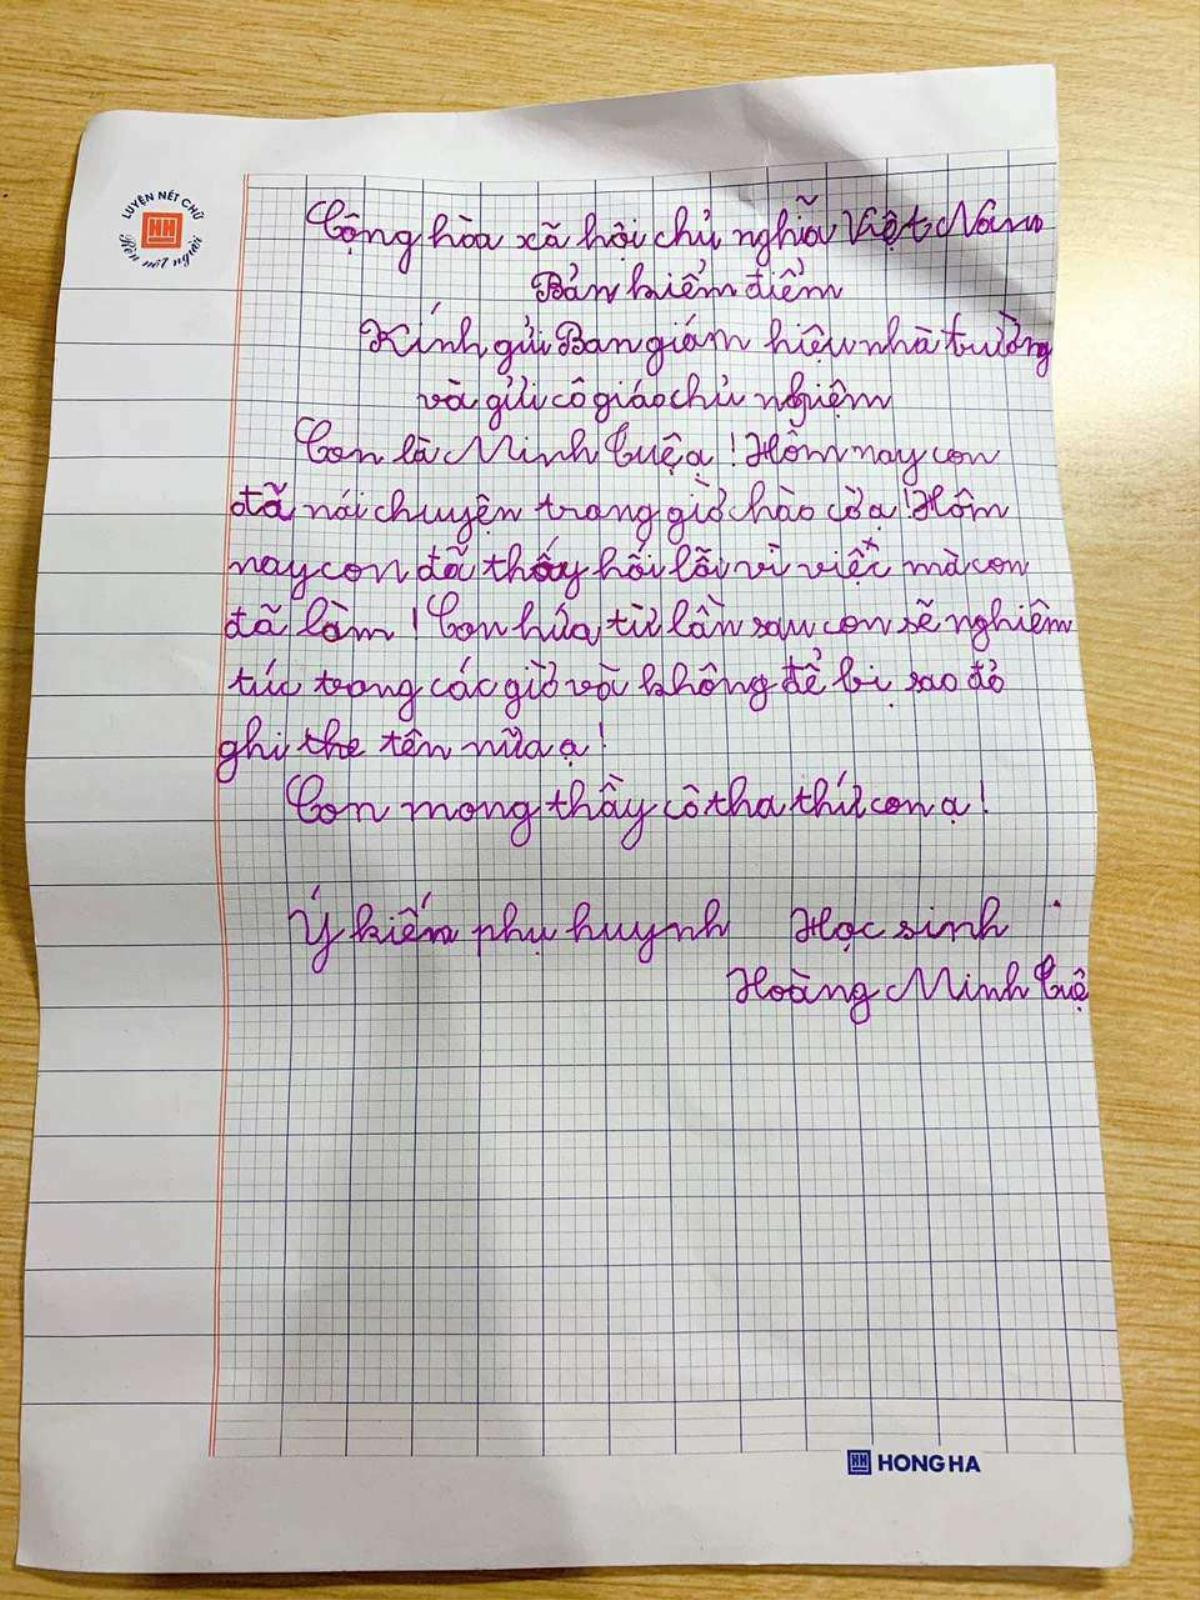 LUYỆN NÉT CHỮ
HH
Rèn nết người
Cộng hòa xã hội chủ nghĩa Việt Nam
Bản kiểm điểm
Kính gửi Ban giám hiệu nhà trường
và gửi cô giáo chủ nghiệm
Con là Minh Tuệ ạ! Hôm nay con
đã nói chuyện trong giờ chào cờ ạ! Hôm
nay con đã thấy hối lỗi vì việc mà con
đã làm! Con hứa từ lần sau con sẽ nghiêm
túc trong các giờ và không để bị sao đỏ
ghi the tên nữa ạ!
Con mong thầy cô tha thứ con ạ!
Ý kiến phụ huynh Học sinh
Hoàng Minh Tuệ
HH HONG HA